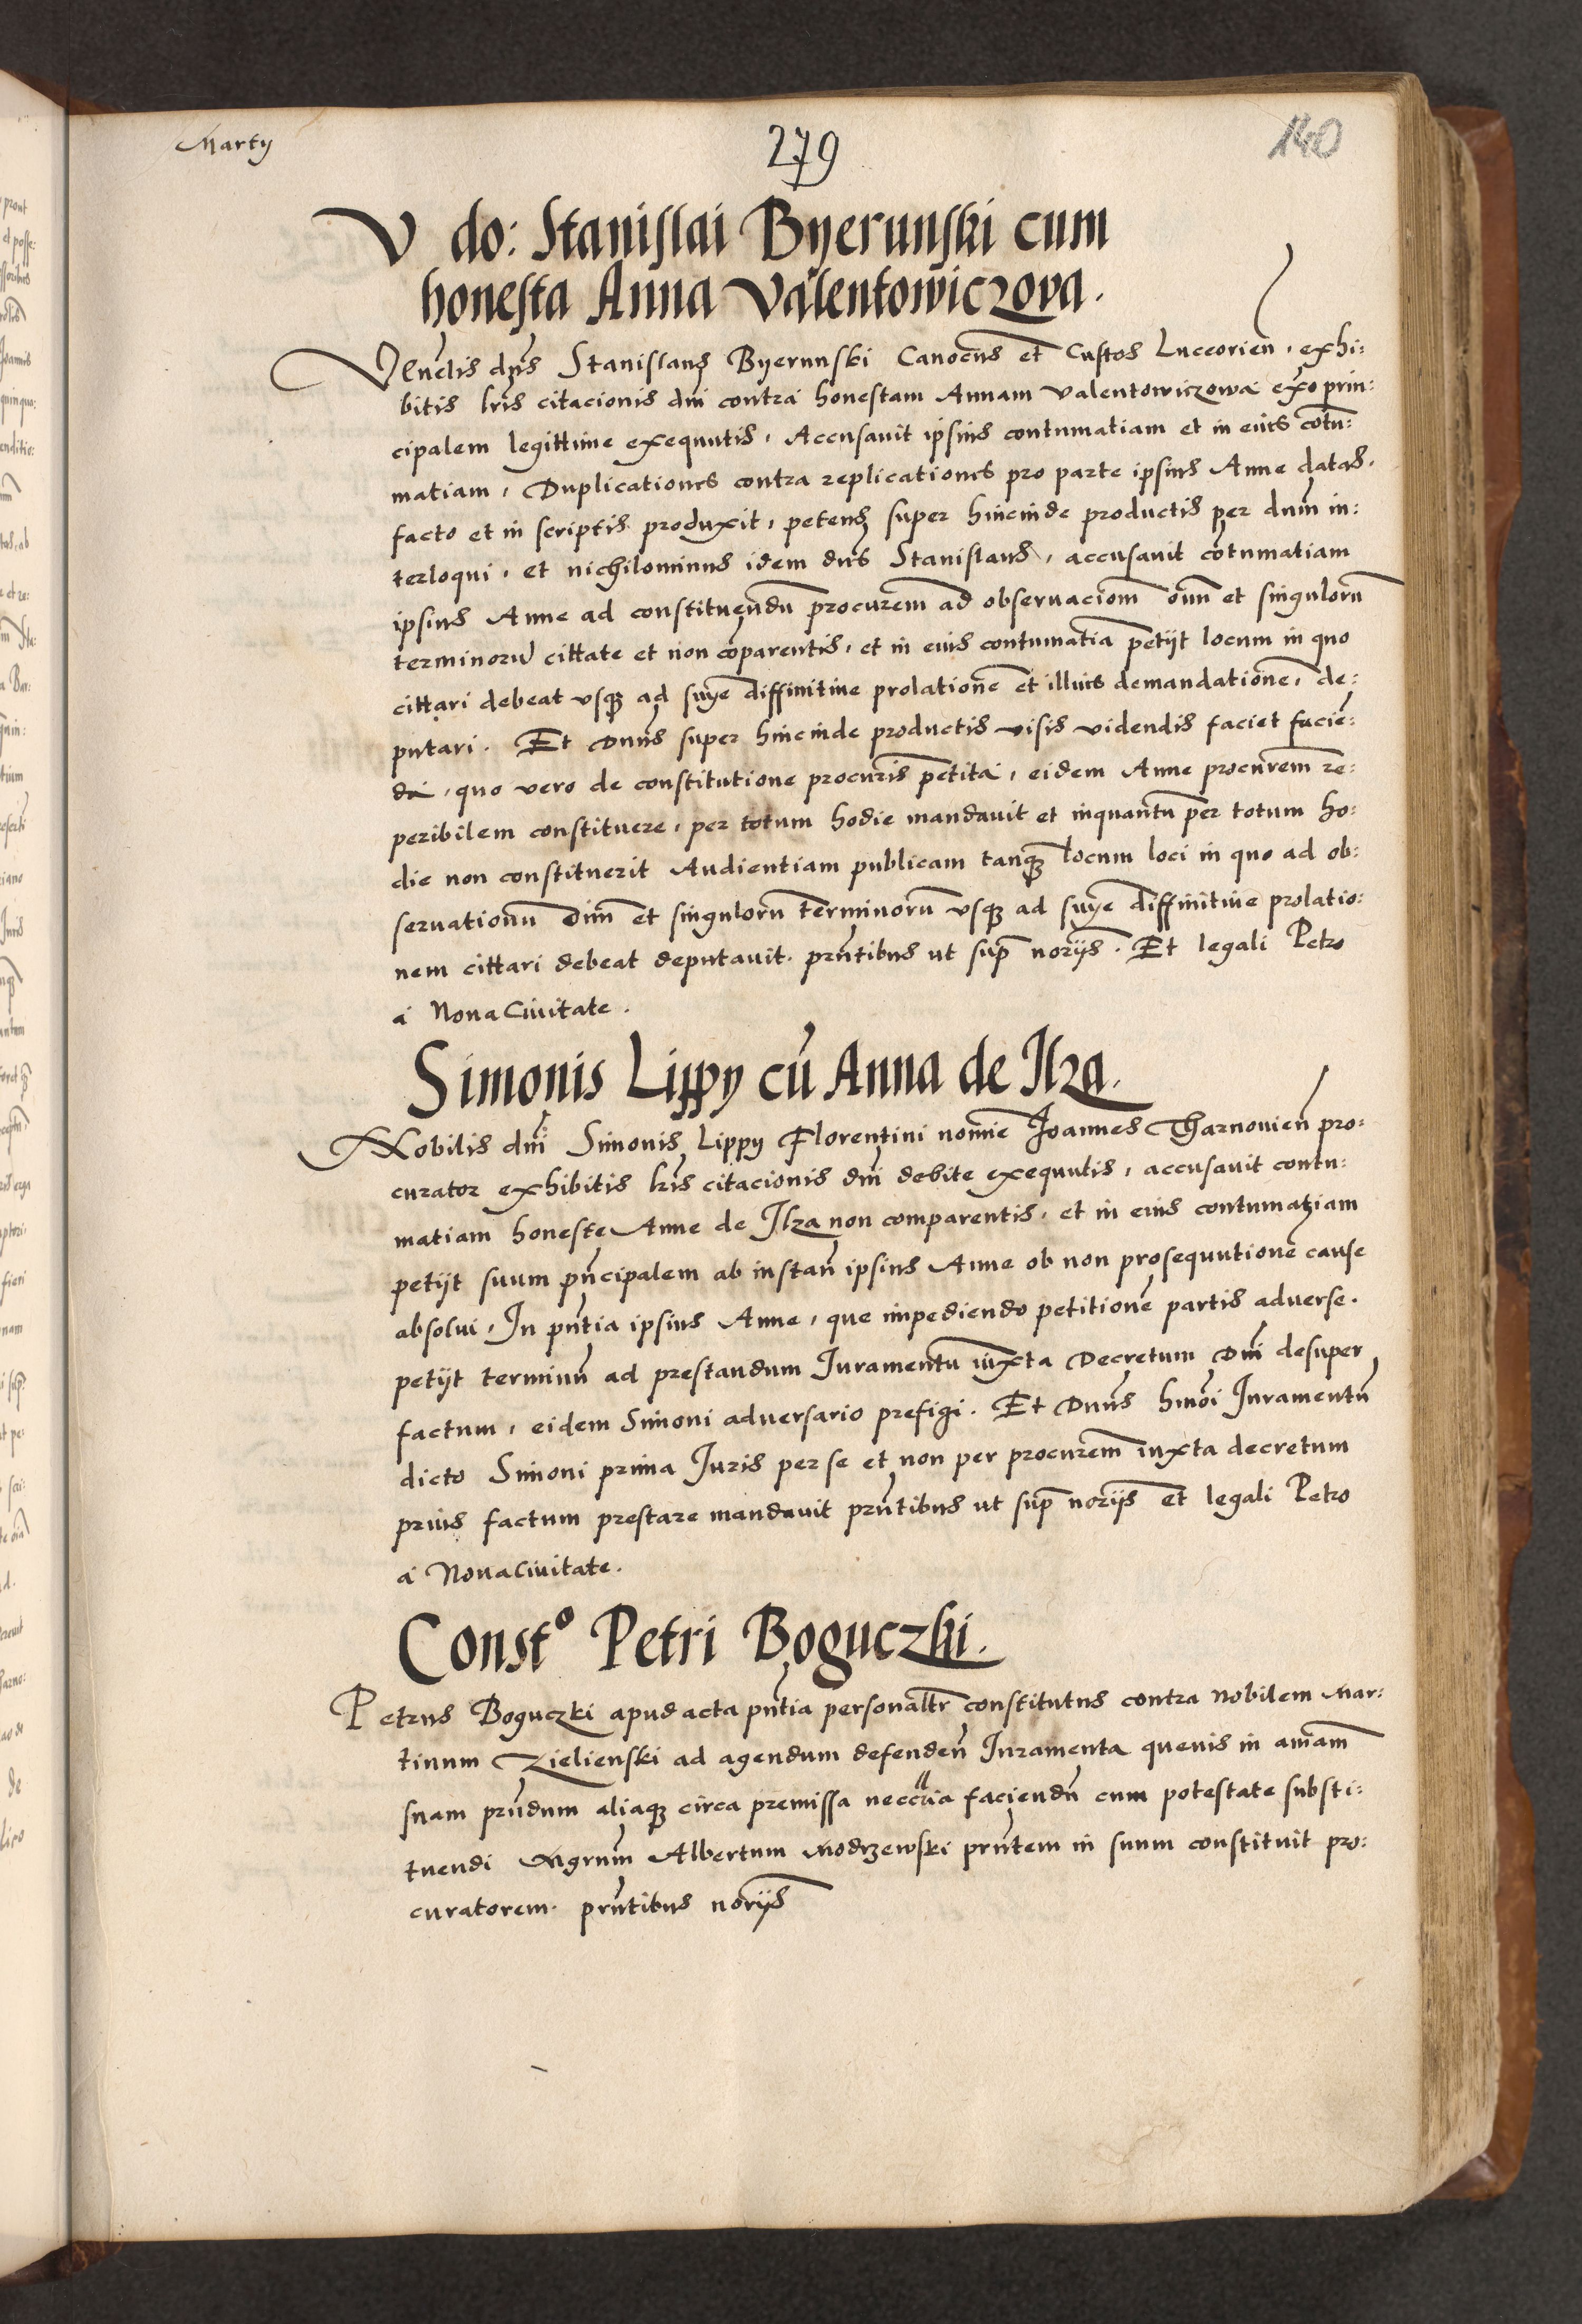 Martij
279
140
V do: Stanislai Byerunski cum
honesta Anna Valentowiczova.
Venelis dn̄s Stanislaus Byerunski Canocus et Custos Luceorien̄, exhi:
bitis lr̄is citacionis dn̄i contra honestam Annam Valentowiczowa ex̄o prin:
cipalem legittime exequutis, Accusauit ipsius contumatiam et in eius cotu:
matiam, Duplicationes contra replicationes pro parte ipsius Anne datas,
facto et in scriptis produxit, petens super hincinde productis per dnm̄ in:
terloqui, et nichilominus idem dn̄s Stanislaus, accusauit cōtumatiam
ipsius Anne ad constituendū procurem̄ ad obseruaciom̄ om̄n et singulorū
terminorū cittate et non cōparentis, et in eius contumatiā petijt locum in quo
cittari debeat vsq₃ ad snīe diffinitiue prolationē et illius demandationē, de:
putari. Et Dn̄us super hincinde productis visis videndis faciet faciē:
da, quo vero de constitutione procuris̄ petita, eidem Anne procurem̄ re:
peribilem constituere, per totum hodie mandauit et inquantū per totum ho:
die non constituerit Audientiam publicam tanq₃ locum loci in quo ad ob:
seruationū om̄n et singulorū terminorū vsq₃ ad snīe diffinitiue prolatio:
nem cittari debeat deputauit. prn̄tibus ut sup̄ norijs. Et legali Petro
a Noua Ciuitate.
Simonis Lippy cū Anna de Ilza.
Nobilis dn̄i Simonis Lippy Florentini nomīe Joannes Tharnouien̄ pro:
curator exhibitis lr̄is citacionis dn̄i debite exequutis, accusauit contu:
matiam honeste Anne de Ilza non comparentis, et in eius contumatiam
petijt suum pn̄cipalem ab instan̄ ipsius Anne ob non prosequutionē cause
absolui, In pn̄tia ipsius Anne, que impediendo petitionē partis aduerse.
petijt terminū ad prestandum Iuramentū iuxta Decretum Dn̄i desuper
factum, eidem Simoni aduersario prefigi. Et Dn̄us hmōi Iuramentū
dicto Simoni prima Iuris per se et non per procurem̄ iuxta decretum
prius factum prestare mandauit prn̄tibus ut sup̄ norijs et legali Petro
a Nouaciuitate.
Constᵒ Petri Boguczki.
Petrus Boguczki apud acta pn̄tia personaltr̄ constitutus contra Nobilem Mar:
tinum Zielienski ad agendum defenden̄ Iuramenta queuis in aniam̄
suam prn̄dum aliaq₃ circa premissa neccr̄ia faciendū cum potestate substi:
tuendi Mgrum̄ Albertum Modrzewski prn̄tem in suum constituit pro:
curatorem. prn̄tibus norijs